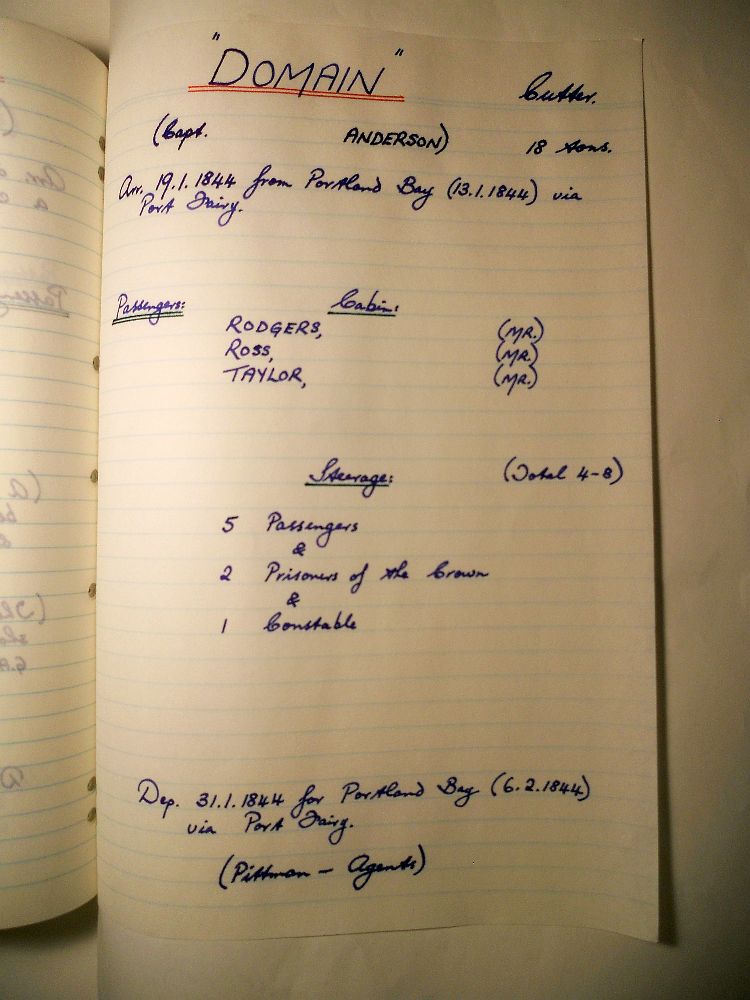 "DOMAIN"
Cutter.
(Capt. ANDERSON) 18 tons.
Arr. 19.1.1844 from Portland Bay (13.1.1844) via
Port Fairy.
Passengers: Cabin:
RODGERS, (MR.)
ROSS, (MR.)
TAYLOR, (MR.)
Steerage: (Total 4-8)
5 Passengers
&
2 Prisoners of the Crown
&
1 Constable
Dep. 31.1.1844 for Portland Bay (6.2.1844)
via Port Fairy.
(Pittman - Agents)